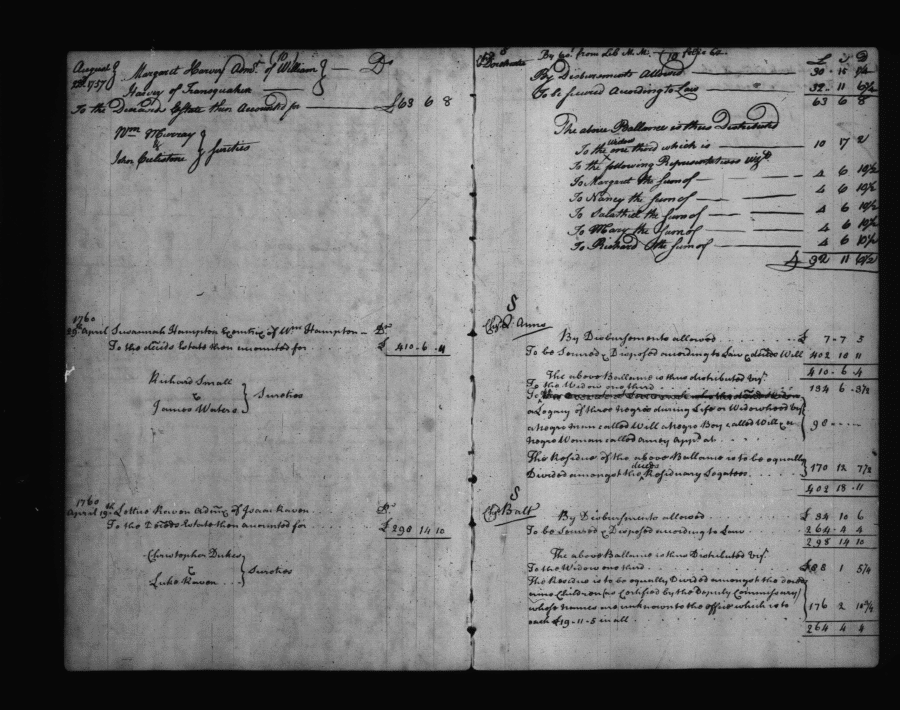 August 22d 1757 } Margaret Harvey Admx. of William } — Dr
Harvey of Transquakin
To the Deceased Estate then Accounted for — £63 6 8
Wm Murray
&
John Eccleston } sureties
1760
29th April Susannah Hampton Executrix of Wm Hampton — Dr
To the deceds Estate then accounted for . . . £ 410 . 6 . 4
Richard Small
&
James Waters } Sureties
1760
April 19th Lettice Raven Admx of Isaac Raven . . . Dr
To the Deceds Estate then accounted for . . . £ 298 14 10
Christopher Dukes
&
Luke Raven . . . } Sureties
Dorchester By Bal from Lib M.M. folio 60
£ S D
By Disbursments Allowed — 30 . 15 1½
To be secured According to Law — 32 . 11 6½
63 6 8
The above Ballance is thus Distributed
To the widow one third which is — 10 17 2
To the following Representatives vizt
To Margaret the sum of — 4 6 10½
To Nancy the sum of — 4 6 10½
To Salathiel the sum of — 4 6 10½
To Mary the sum of — 4 6 10½
To Richard the sum of — 4 6 10½
£ 32 11 6½
Cr St. Anns
By Disbursements allowed . . . £ 7 - 7 5
To be Secured & Disposed according to Law & deceds Will 402 10 11
410 . 6 . 4
The above Ballance is thus distributed vizt.
To the Widow one third . . . 134 6 . 3½
To
a Legacy of three negroes during Life or Widowhood vizt
a negro man called Will a negro Boy called Will & a
negro Woman called Amey Appd at . . . 98 - - -
The Residue of the above Ballance is to be equally
Divided amongst the deceds Residuary Legatees . . . 170 12 7½
402 18 . 11
Cr Balt
By Disbursments allowed . . . £ 34 10 6
To be Secured & Disposed according to Law . . . 264 . 4 4
298 14 10
The above Ballance is thus Distributed vizt.
To the Widow one third . . . £88 1 5¼
The Residue is to be equally Divided amongst the deceds
nine Children (as certified by the Deputy Commissary)
whose names are unknown to the office which is to
each £19 - 11 - 5 in all . . . 176 2 10¾
264 4 4